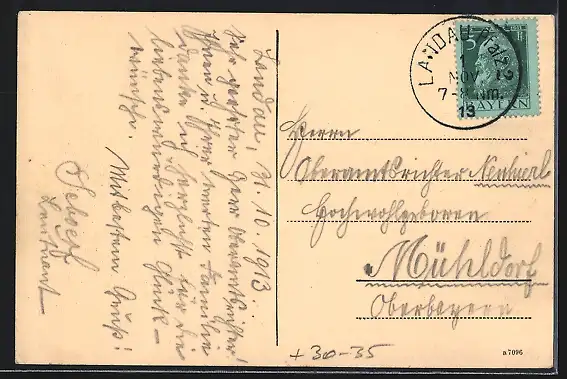 Landau, 31.10.1913.
Sehr geehrter Herr Oberamtsrichter!
Ihnen u. Ihrer werten Familie
danke ich herzlichst für die
liebenswürdigen Glück-
wünsche. Mit bestem Gruß!
Leutnant
LANDAU (Pfalz) 2
NOV
7-8 Nm.
13
5
BAYERN
Herrn
Oberamtsrichter
Hochwohlgeboren
Mühldorf
Oberbayern
+ 30-35
a 7096